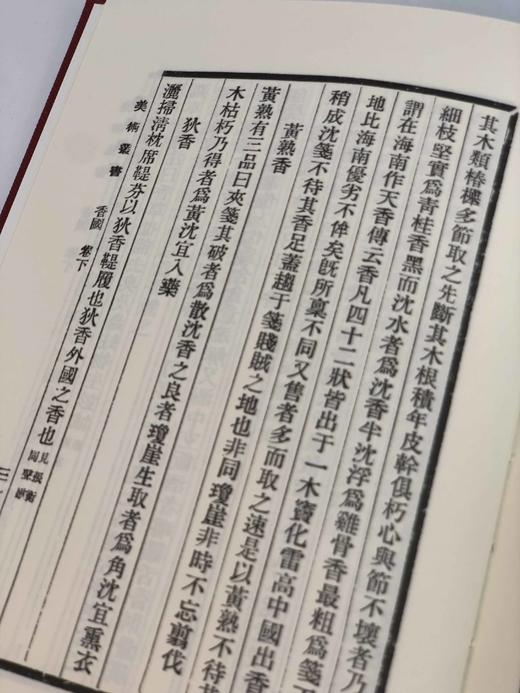 其木類椿櫸多節取之先斷其木根積年皮幹俱朽心與節不壞者乃
細枝堅實爲青桂香黑而沈水者爲沈香半沈浮爲雞骨香最粗爲箋
謂在海南作天香傳云香凡四十二狀皆出于一木竇化雷高中國出香
地比海南優劣不侔矣旣所稟不同又售者多而取之速是以黃熟不待
稍成沈箋不待其香足蓋趨于箋賤賊之地也非同瓊崖非時不忘翦伐
黃熟香
黃熟有三品曰夾箋其破者爲散沈香之良者瓊崖生取者爲角沈宜熏衣
木枯朽乃得者爲黃沈宜入藥
狄香
灑掃清枕席鞮芬以狄香鞮履也狄香外國之香也見張衡同聲
美術叢書 香國 卷下